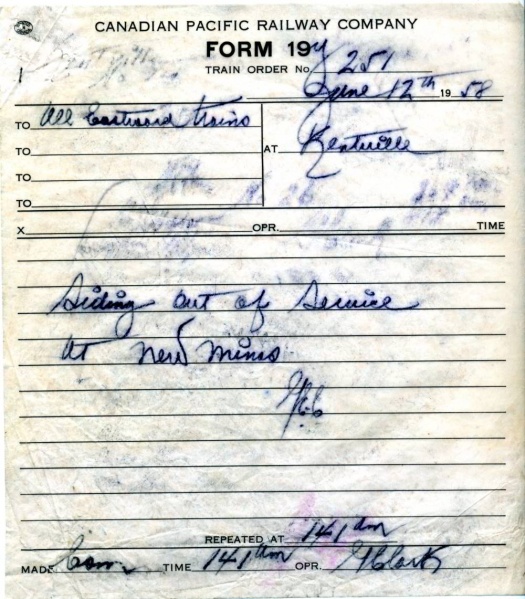 CANADIAN PACIFIC RAILWAY COMPANY
FORM 19Y
TRAIN ORDER No. 251
June 12th 1958
TO All Eastward trains
TO AT Kentville
TO
TO
X OPR. TIME
Siding out of Service
at New Minas
REPEATED AT 141 am
MADE Com TIME 141 am OPR. Clark